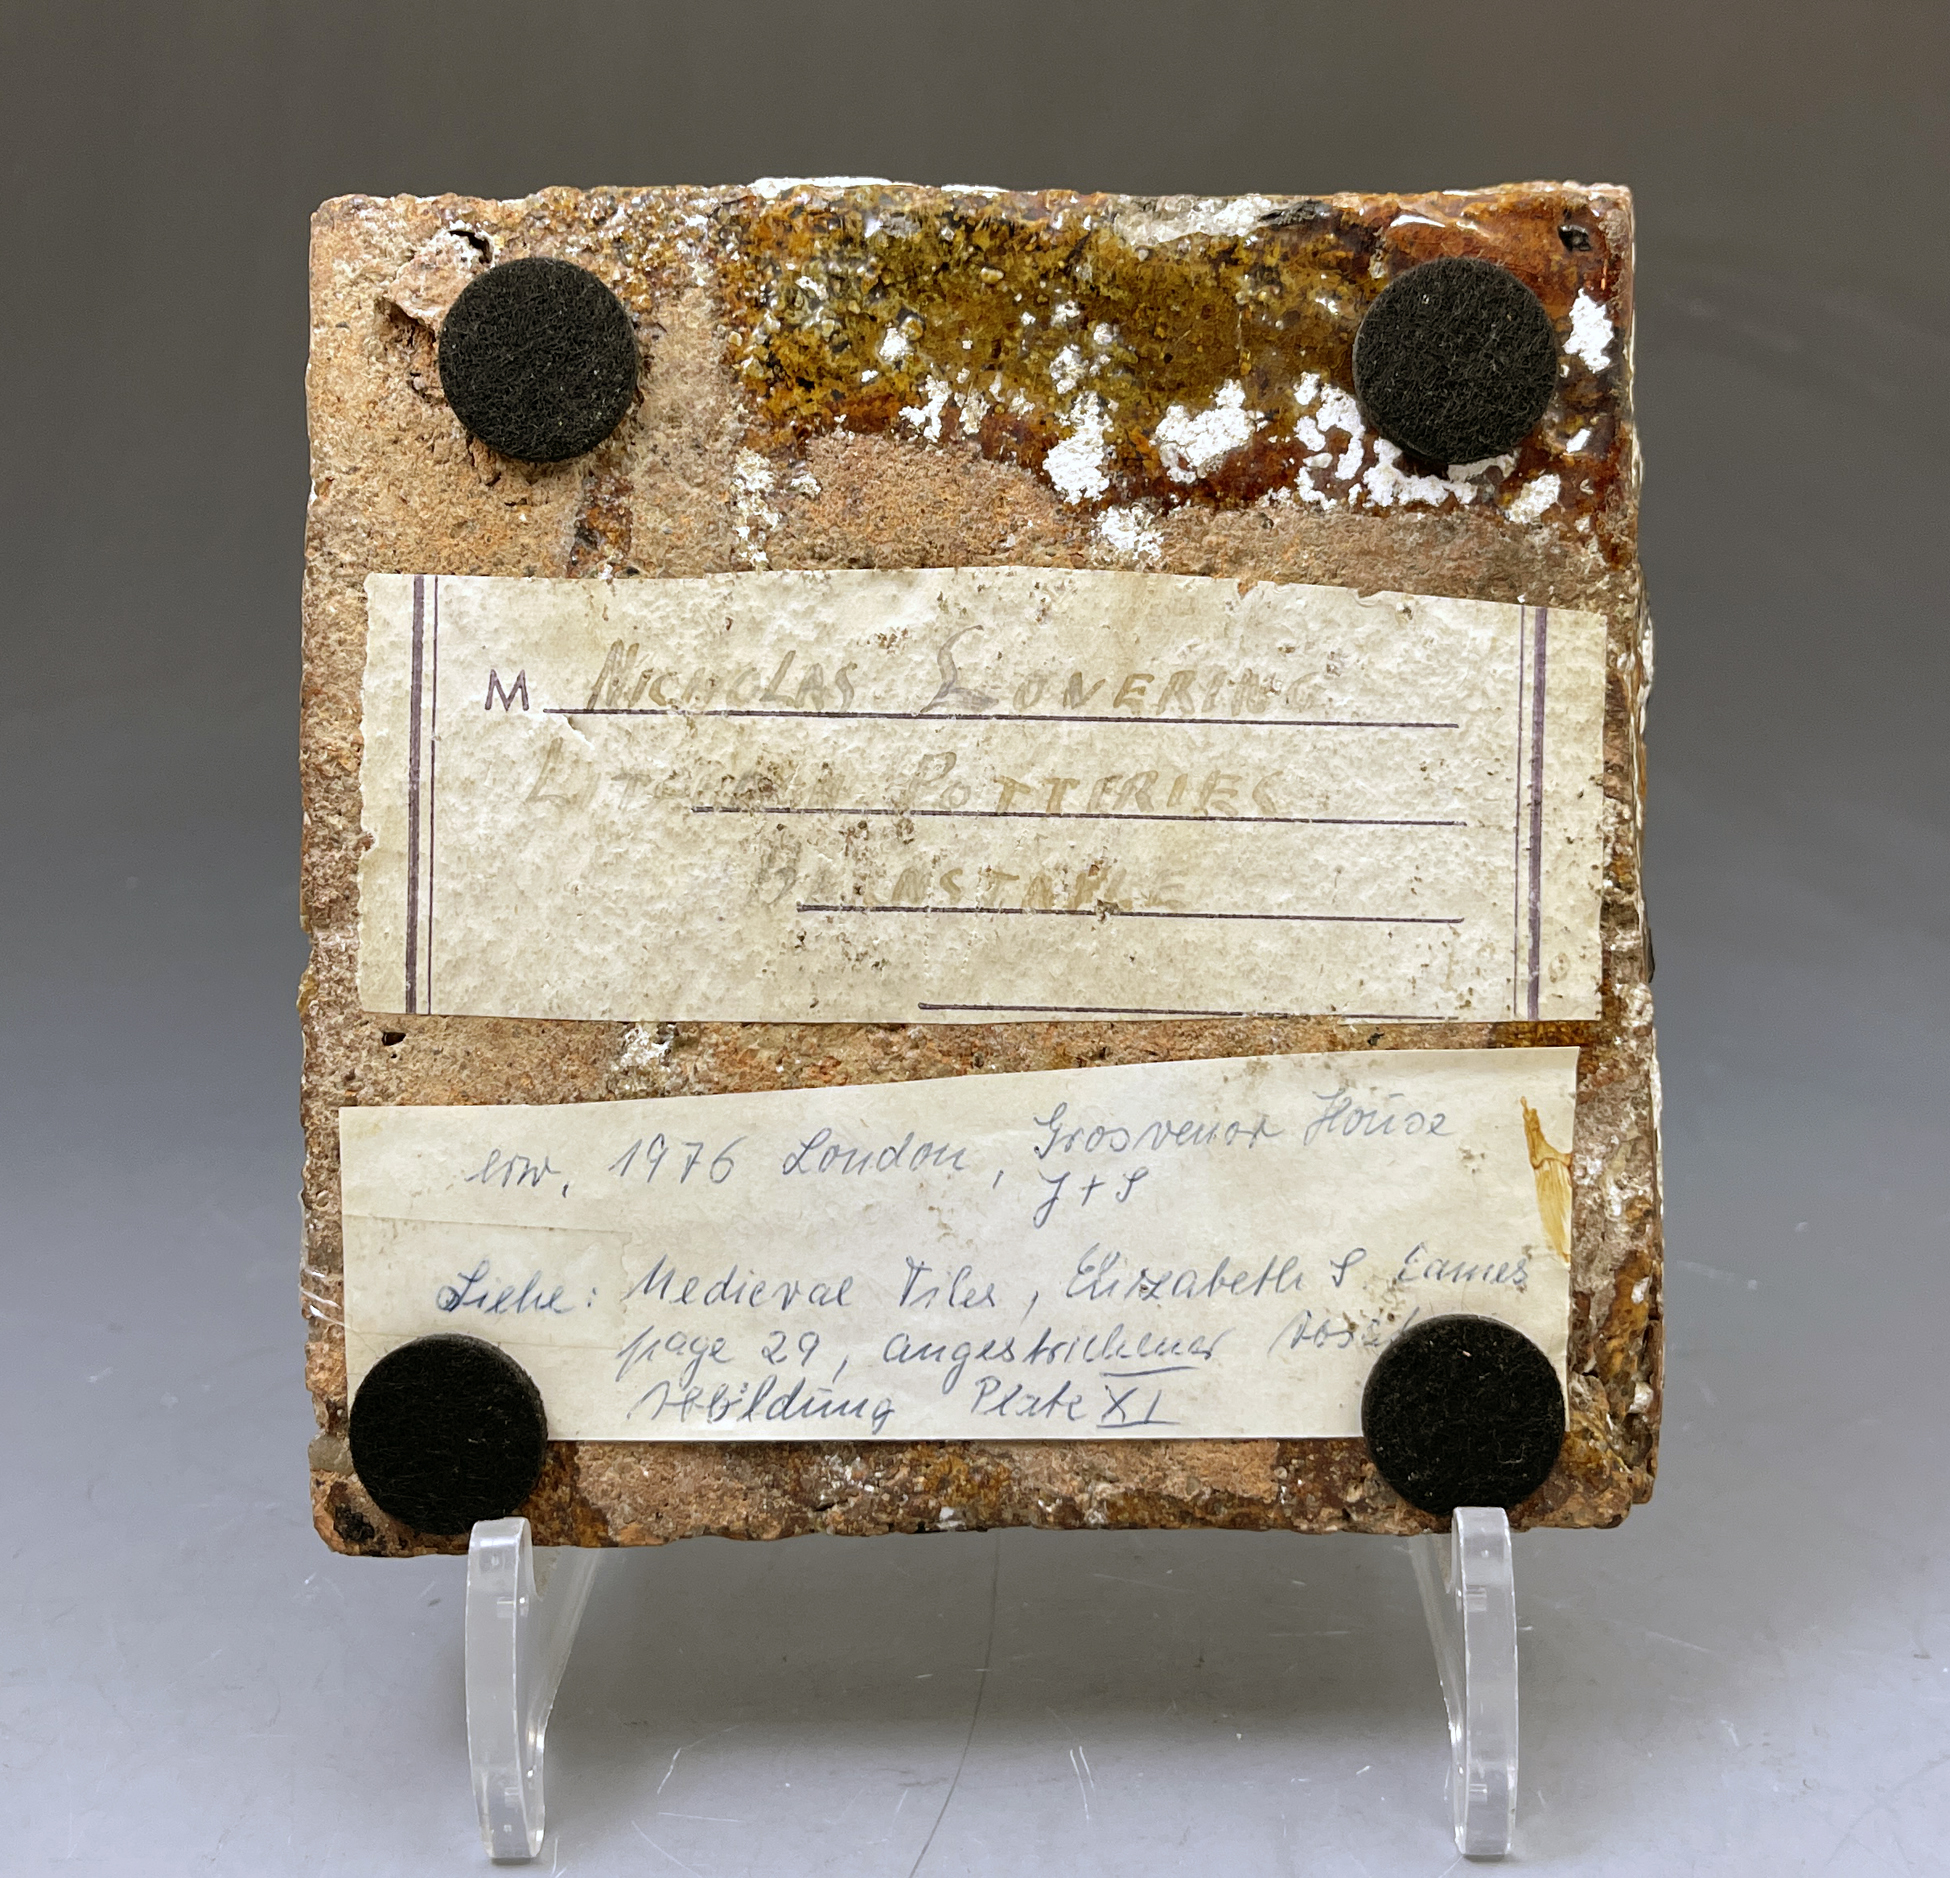 M NICHOLAS LOVERING
POTTERIES
BARNSTAPLE
erw. 1976 London, Grosvenor House
J + S
Siehe: Medieval Tiles, Elizabeth S Eames
page 29, angestrichener
Abbildung Plate XI